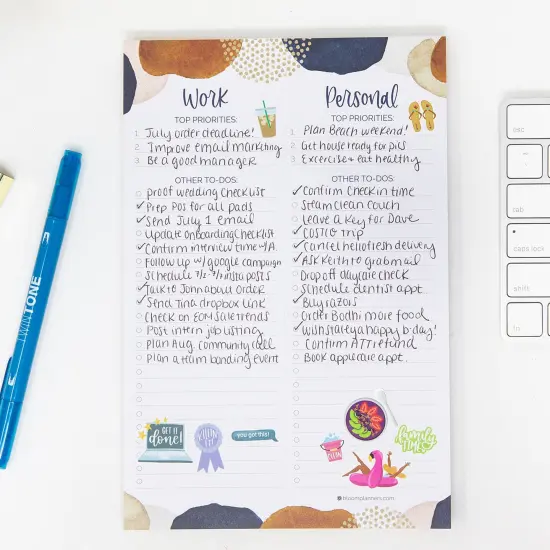 Work
TOP PRIORITIES:
1 July order deadline!
2 Improve email marketing
3 Be a good manager
OTHER TO-DOS:
proof wedding checklist
Prep POs for all pads
Send July 1 email
Update onboarding checklist
Confirm interview time w/A.
Follow up w/google campaign
Schedule insta posts
Talk to John about order
Send Tina dropbox link
Check on EOM sale trends
Post intern job listing
Plan Aug. community call
Plan a team bonding event
GET IT done!
you got this!
Personal
TOP PRIORITIES:
1 Plan Beach weekend!
2 Get house ready for pics
3 Excercise & eat healthy
OTHER TO-DOS:
Confirm check in time
Steam clean couch
Leave a key for Dave
COSTCO trip
Cancel hellofresh delivery
Ask Keith to grab mail
Drop off daycare check
Schedule dentist appt.
Buy razors
Order Bodhi more food
Wish stateya happy b-day!
Confirm ATT refund
Book applecare appt.
family TIME
CLEAN
bloomplanners.com
TWINTONE
esc
tab
caps lock
shift
fn